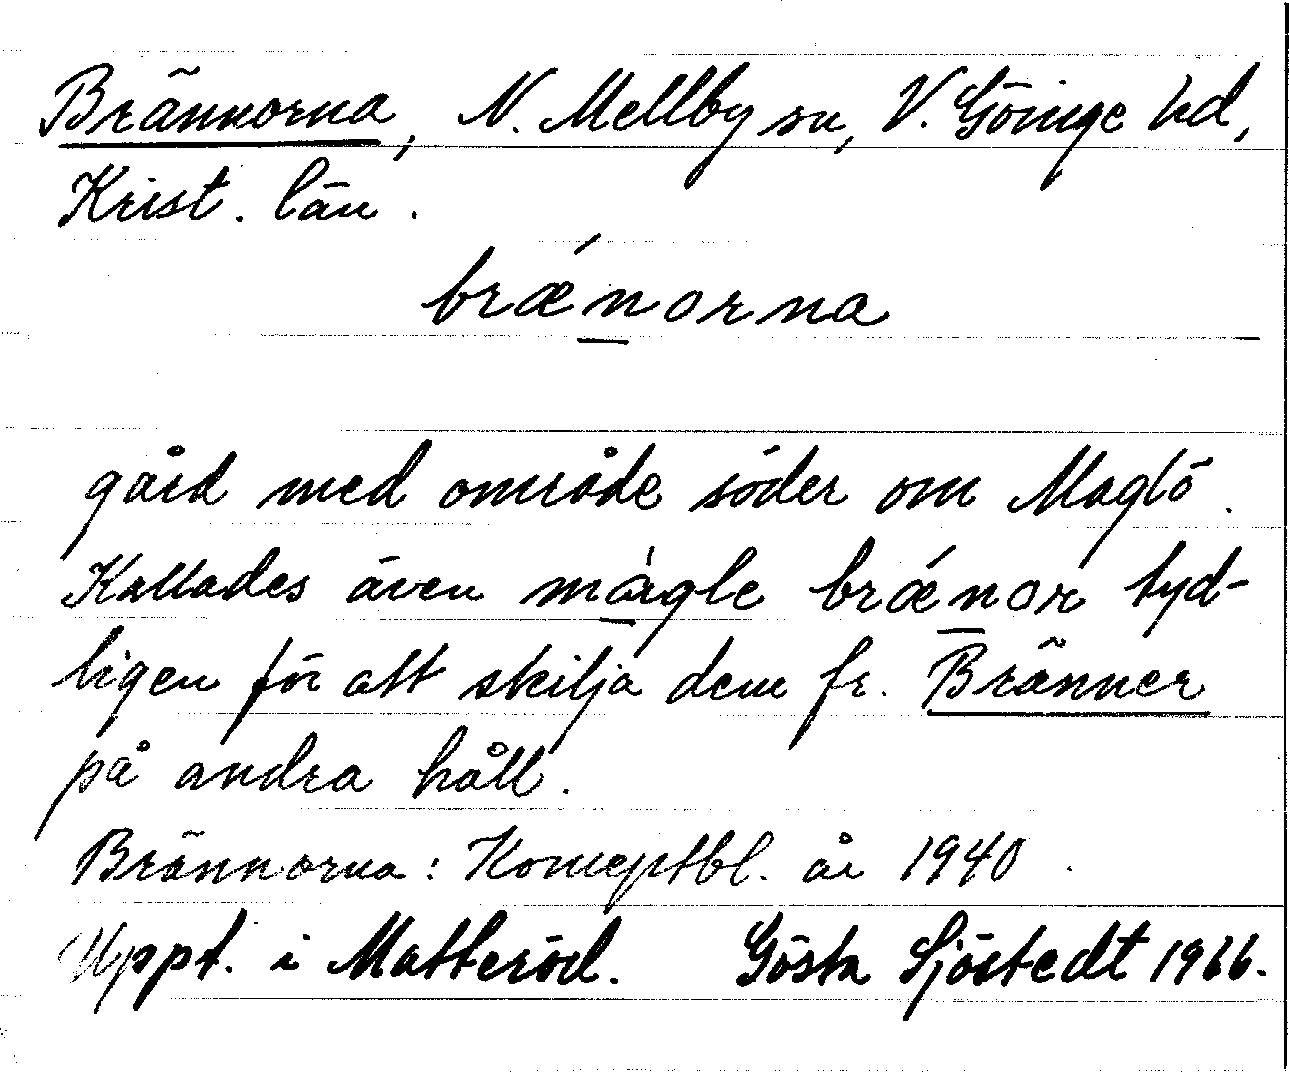 Brännorna, N. Mellby sn, V. Göinge hd,
Krist. län.
brǽn̲orna
gård med område söder om Maglö.
Kallades även màgle brǽn̲or tyd-
ligen för att skilja dem fr. Bränner
på andra håll.
Brännorna: Konceptbl. år 1940.
Uppt. i Matteröd. Gösta Sjöstedt 1966.